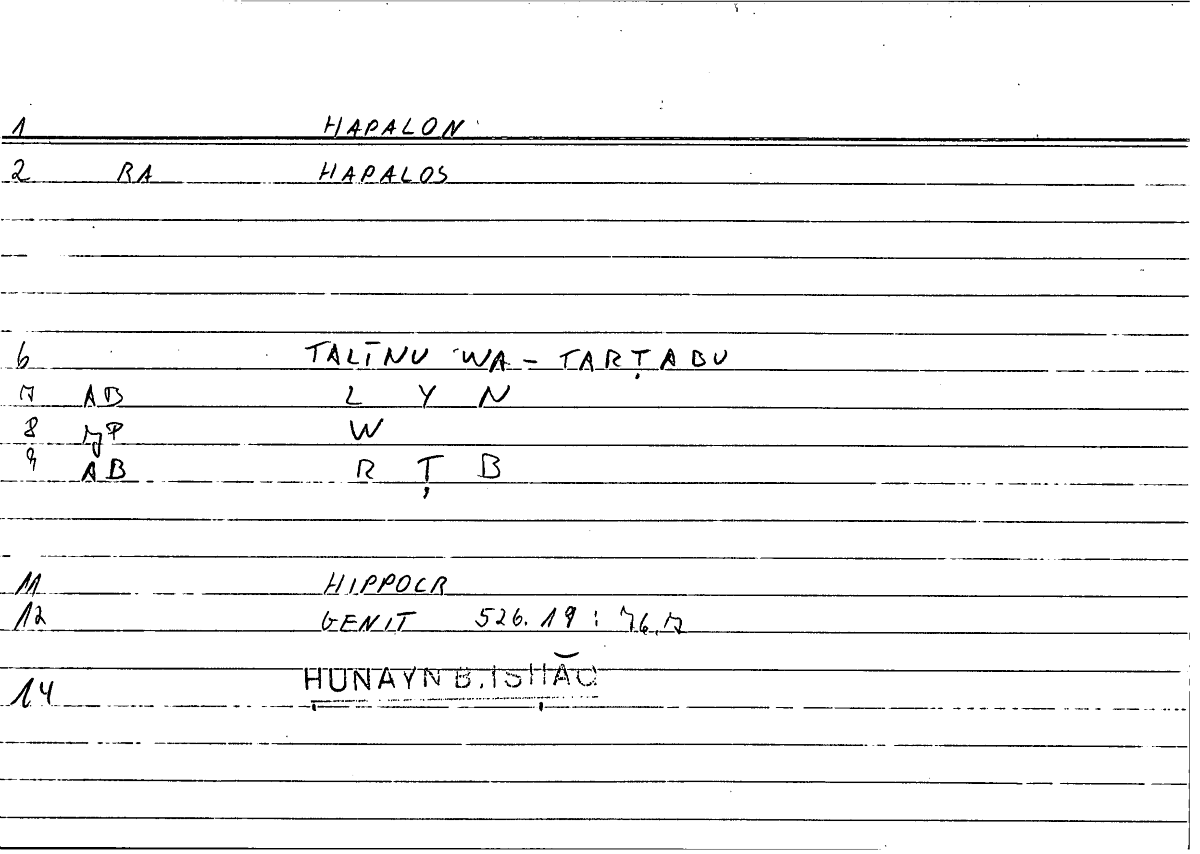 1 HAPALON
2 RA HAPALOS
6 TALĪNU WA-TARṬABU
7 AB L Y N
8 W
9 AB R Ṭ B
11 HIPPOCR
12 GENIT 526.19 : 76.17
14 ḤUNAYN B. ISḤĀQ